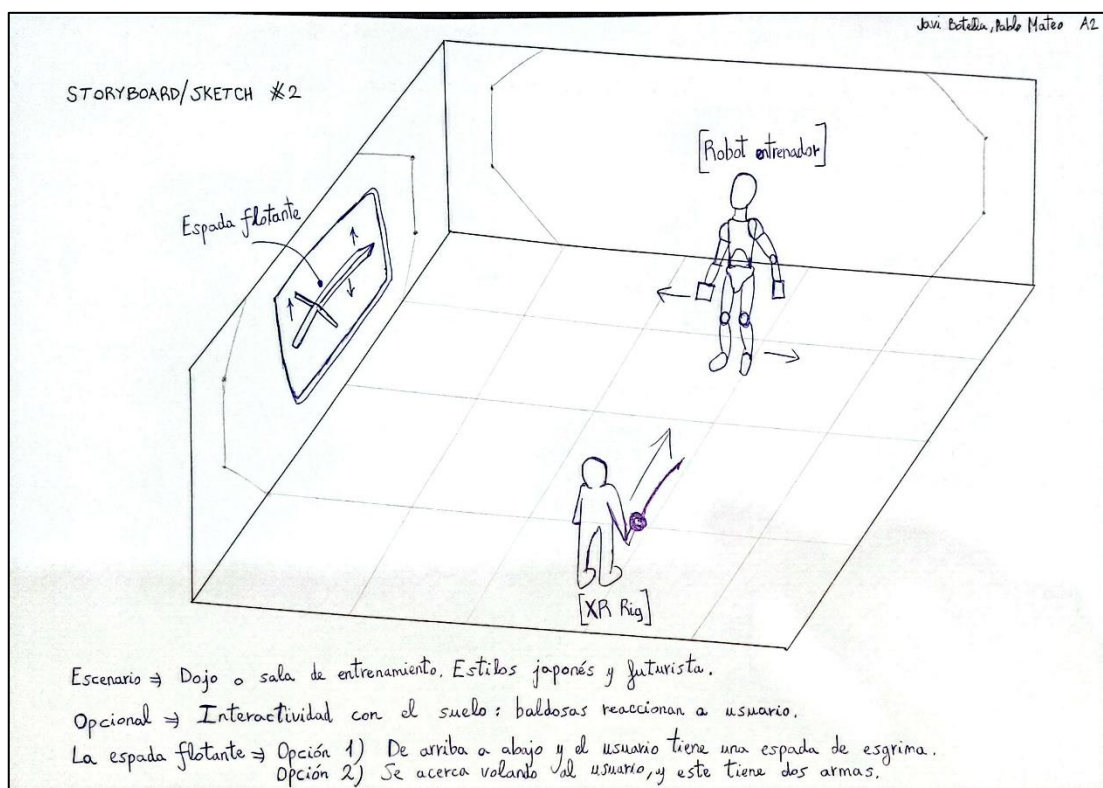 Javi Botella, Pablo Mateo A2
STORYBOARD/SKETCH #2
[Robot entrenador]
Espada flotante
[XR Rig]
Escenario ⇒ Dojo o sala de entrenamiento. Estilos japonés y futurista.
Opcional ⇒ Interactividad con el suelo: baldosas reaccionan a usuario.
La espada flotante ⇒ Opción 1) De arriba a abajo y el usuario tiene una espada de esgrima.
Opción 2) Se acerca volando al usuario, y este tiene dos armas.